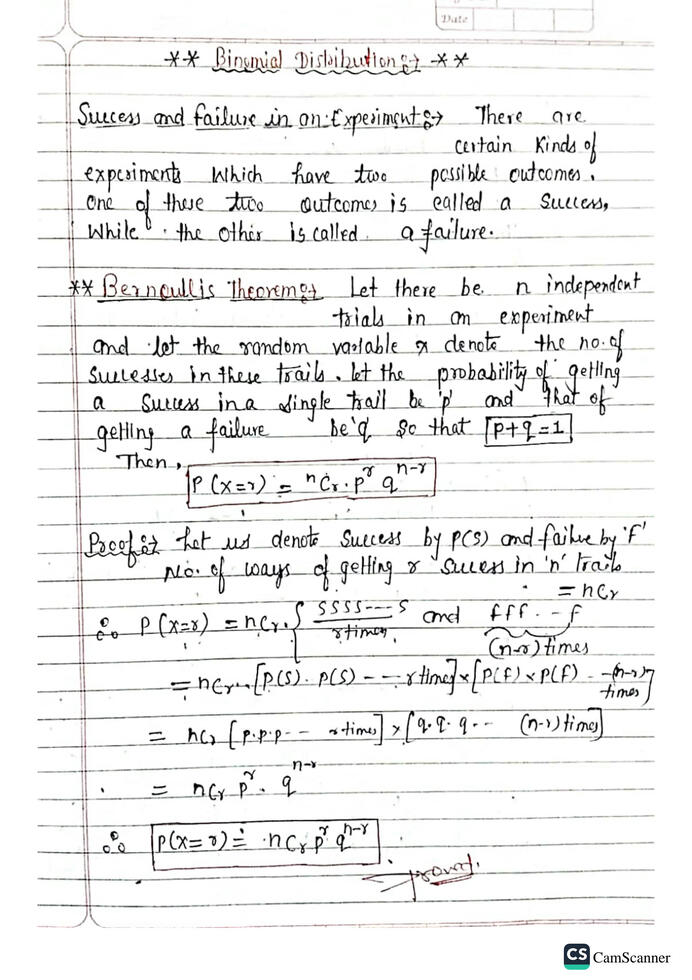 Date
** Binomial Distribution :→ **
Success and failure in an Experiment :→ There are
certain kinds of
experiments which have two possible outcomes.
one of these two outcomes is called a success,
while the other is called a failure.
** Bernoullis Theorem :→ Let there be n independent
trials in an experiment
and let the random variable x denote the no. of
successes in these trails. let the probability of getting
a success in a single trail be 'p' and that of
getting a failure be 'q' so that p+q=1
Then,
P(x=r) = ⁿCr · p^r q^(n-r)
Proof :→ Let us denote success by P(S) and failure by 'F'
No. of ways of getting r sucess in 'n' trails
= nCr
∴ P(x=r) = nCr. { SSSS---S and fff..-f
r times (n-r) times
= nCr.. [P(S). P(S) -- - r time] × [P(f) × P(f) - -(n-r)
times]
= nCr [p.p.p-- - r times] × [q. q. q.-- (n-r) times]
= nCr p^r . q^(n-r)
∴ P(x=r) = nCr p^r q^(n-r)
proved.
CS CamScanner